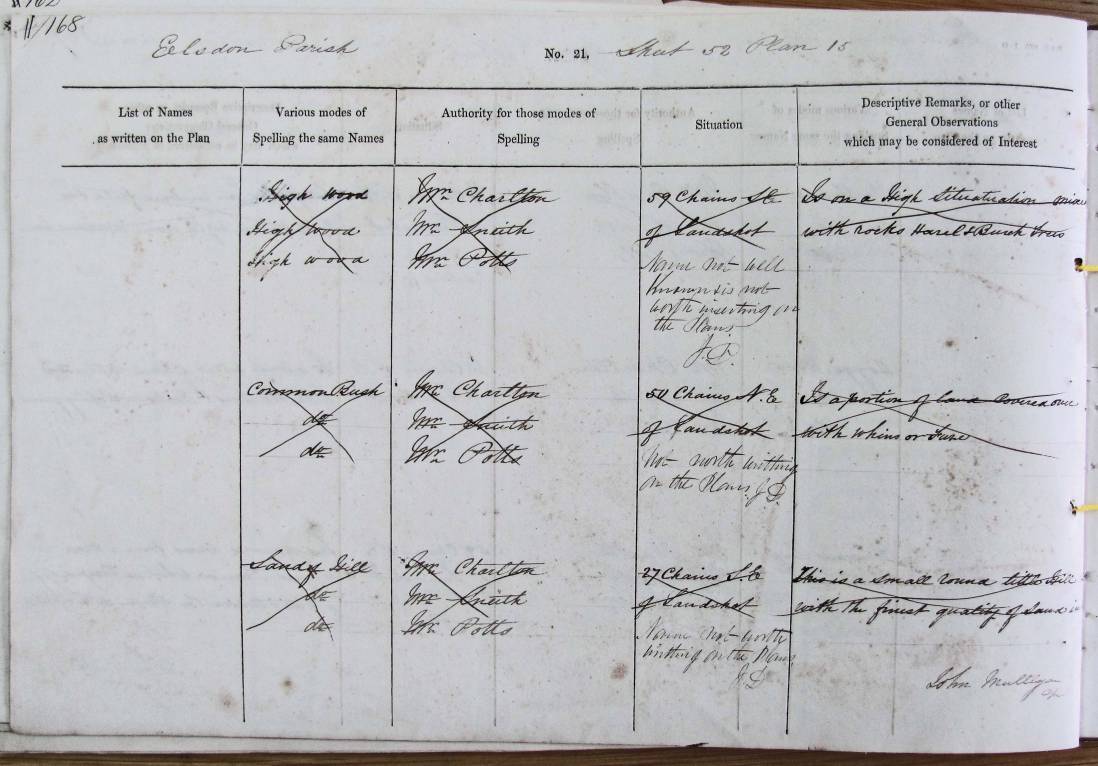 11/168
Eelsdon Parish No. 21, Sheet 52 Plan 15
List of Names
as written on the Plan
Various modes of
Spelling the same Names
Authority for those modes of
Spelling
Situation
Descriptive Remarks, or other
General Observations
which may be considered of Interest
High wood
High wood
High wood
Mr Charlton
Mr Sneith
Mr Potts
59 Chains S.E
of Landshot
Name not well
known & is not
worth inserting on
the Plans
J.D.
Is on a High Situatuation
with rocks Hazel & Burch Trees
Common Bush
do
do
Mr Charlton
Mr Sneith
Mr Potts
54 Chains N.E
of Landshot
Not worth writting
on the Plans J.D.
Is a portion of land Covered over
with whins or Furze
Sandy Hill
do
do
Mr Charlton
Mr Sneith
Mr Potts
27 Chains S.E
of Landshot
Name not worth
writting on the Plans
J.D
This is a small round little Hill
with the finest quality of Sand in
John Mulligan